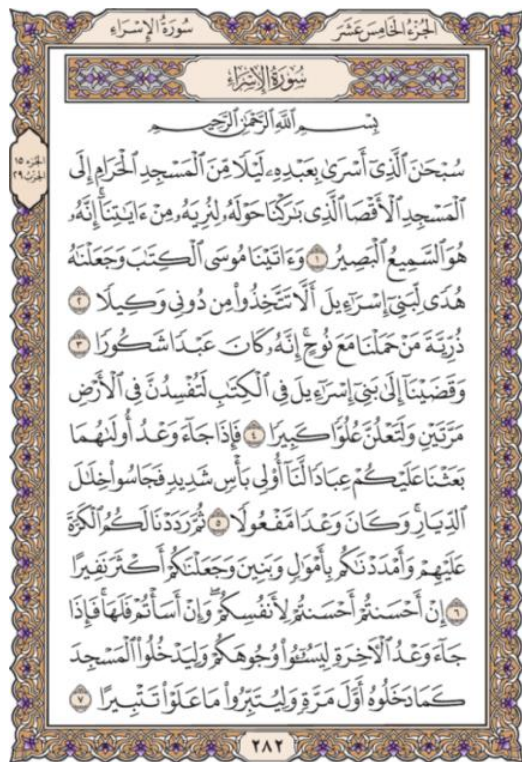 سُورَةُ الإِسۡرَاءِ
الجُزۡءُ الخَامِسَ عَشَرَ
سُورَةُ الإِسۡرَاءِ
بِسۡمِ ٱللَّهِ ٱلرَّحۡمَٰنِ ٱلرَّحِيمِ
الجزء ١٥
الحزب ٢٩
سُبۡحَٰنَ ٱلَّذِيٓ أَسۡرَىٰ بِعَبۡدِهِۦ لَيۡلٗا مِّنَ ٱلۡمَسۡجِدِ ٱلۡحَرَامِ إِلَى
ٱلۡمَسۡجِدِ ٱلۡأَقۡصَا ٱلَّذِي بَٰرَكۡنَا حَوۡلَهُۥ لِنُرِيَهُۥ مِنۡ ءَايَٰتِنَآۚ إِنَّهُۥ
هُوَ ٱلسَّمِيعُ ٱلۡبَصِيرُ ١ وَءَاتَيۡنَا مُوسَى ٱلۡكِتَٰبَ وَجَعَلۡنَٰهُ
هُدٗى لِّبَنِيٓ إِسۡرَٰٓءِيلَ أَلَّا تَتَّخِذُواْ مِن دُونِي وَكِيلٗا ٢
ذُرِّيَّةَ مَنۡ حَمَلۡنَا مَعَ نُوحٍۚ إِنَّهُۥ كَانَ عَبۡدٗا شَكُورٗا ٣
وَقَضَيۡنَآ إِلَىٰ بَنِيٓ إِسۡرَٰٓءِيلَ فِي ٱلۡكِتَٰبِ لَتُفۡسِدُنَّ فِي ٱلۡأَرۡضِ
مَرَّتَيۡنِ وَلَتَعۡلُنَّ عُلُوّٗا كَبِيرٗا ٤ فَإِذَا جَآءَ وَعۡدُ أُولَىٰهُمَا
بَعَثۡنَا عَلَيۡكُمۡ عِبَادٗا لَّنَآ أُوْلِي بَأۡسٖ شَدِيدٖ فَجَاسُواْ خِلَٰلَ
ٱلدِّيَارِۚ وَكَانَ وَعۡدٗا مَّفۡعُولٗا ٥ ثُمَّ رَدَدۡنَا لَكُمُ ٱلۡكَرَّةَ
عَلَيۡهِمۡ وَأَمۡدَدۡنَٰكُم بِأَمۡوَٰلٖ وَبَنِينَ وَجَعَلۡنَٰكُمۡ أَكۡثَرَ نَفِيرًا
٦ إِنۡ أَحۡسَنتُمۡ أَحۡسَنتُمۡ لِأَنفُسِكُمۡۖ وَإِنۡ أَسَأۡتُمۡ فَلَهَاۚ فَإِذَا
جَآءَ وَعۡدُ ٱلۡأٓخِرَةِ لِيَسُـُٔواْ وُجُوهَكُمۡ وَلِيَدۡخُلُواْ ٱلۡمَسۡجِدَ
كَمَا دَخَلُوهُ أَوَّلَ مَرَّةٖ وَلِيُتَبِّرُواْ مَا عَلَوۡاْ تَتۡبِيرًا ٧
٢٨٢